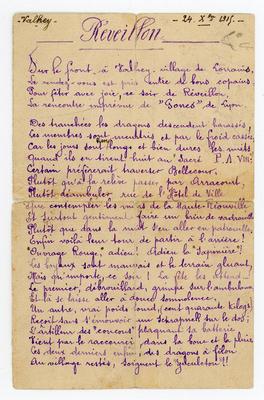 Valhey
24. Xbre 1915.
Réveillon
Sur le front, à Valhey, village de Lorraine,
Le rendez-vous est pris entre de bons copains
Pour fêter avec joie, ce soir de Réveillon,
La rencontre imprévue de "Gones" de Lyon.
Des tranchées les dragons descendent harassés,
Les membres sont meurtris et par le froid cassés,
Car les jours sont longs et bien dures les nuits
Quand ils en tirent huit au Sacré P.A. VIII.
Certain préféreraient traverser Bellecour
Plutôt qu'à la relève passer par Arracourt
Plutôt déambuler rue de l'Hôtel de Ville
Que contempler les murs de la Haute-Riouville
Et surtout gentiment faire un brin de vadrouille
Plutôt que dans la nuit s'en aller en patrouille,
Enfin voilà leur tour de partir à l'arrière!
Ouvrage Rouge, adieu! Adieu la
Les boyaux sont mauvais et le terrain gluant,
Mais qu'importe, ce soir la fête les attend
Le premier, débrouillard, grimpe sur l'ambulance
Et là se laisse aller à douce somnolence.
Un autre, vrai poids lourd, (cent quarante kilogs)
Reçoit sans s'émouvoir un schrapnell sur le dos;
L'artilleur des "coucous" plaquant sa batterie
Vient par le raccourci, dans la boue et la pluie
Les deux derniers enfin, des dragons à filon
Au village restés, soignent le gueuleton!!